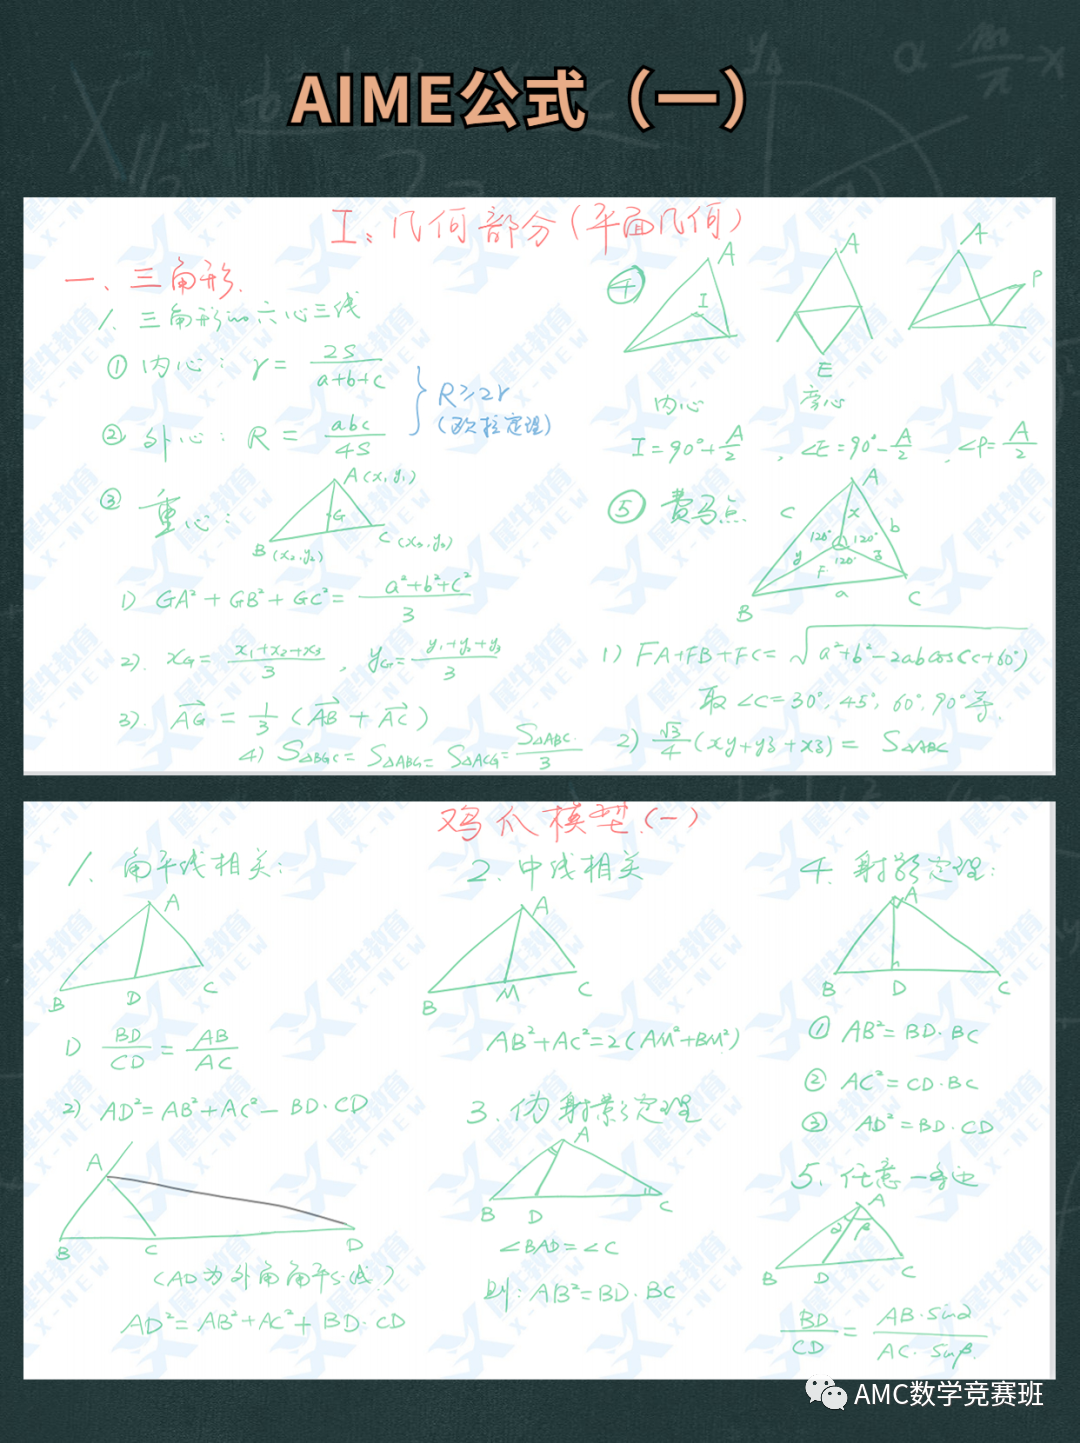 AIME公式（一）
I、几何部分(平面几何)
一、三角形.
1、三角形的六心三线
① 内心: r = 2S / a+b+c
② 外心: R = abc / 4S
R≥2r
(欧拉定理)
③ 重心:
A(x1,y1)
G
B(x2,y2)
C(x3,y3)
1) GA²+GB²+GC²= a²+b²+c² / 3
2). xG= x1+x2+x3 / 3 , yG= y1+y2+y3 / 3
3). AG = 1/3 (AB + AC)
4) S△BGC= S△ABG= S△ACG= S△ABC / 3
④
A
I
A
E
A
P
内心
旁心
I=90°+A/2 , ∠E=90°-A/2 , ∠P=A/2
⑤ 费马点
A
c
x
b
120°
120°
y
120°
z
F
B
a
C
1) FA+FB+FC=√a²+b²-2abcos(C+60°)
取∠C=30°, 45°, 60°, 90°等.
2) √3/4 (xy+yz+xz)= S△ABC
鸡爪模型(一)
1、角平线相关:
A
B
D
C
1) BD/CD = AB/AC
2) AD²=AB²+AC²- BD·CD
A
B
C
D
(AD为外角角平分线)
AD²= AB²+AC²+ BD·CD
2、中线相关
A
B
M
C
AB²+AC²=2(AM²+BM²)
3、伪射影定理
A
B
D
C
∠BAD=∠C
则: AB²=BD·BC
4、射影定理:
A
B
D
C
① AB²=BD·BC
② AC²=CD·BC
③ AD²=BD·CD
5、任意一条边
A
α
β
B
D
C
BD/CD = AB·sinα / AC·sinβ.
犀牛教育
X-NEW
AMC数学竞赛班